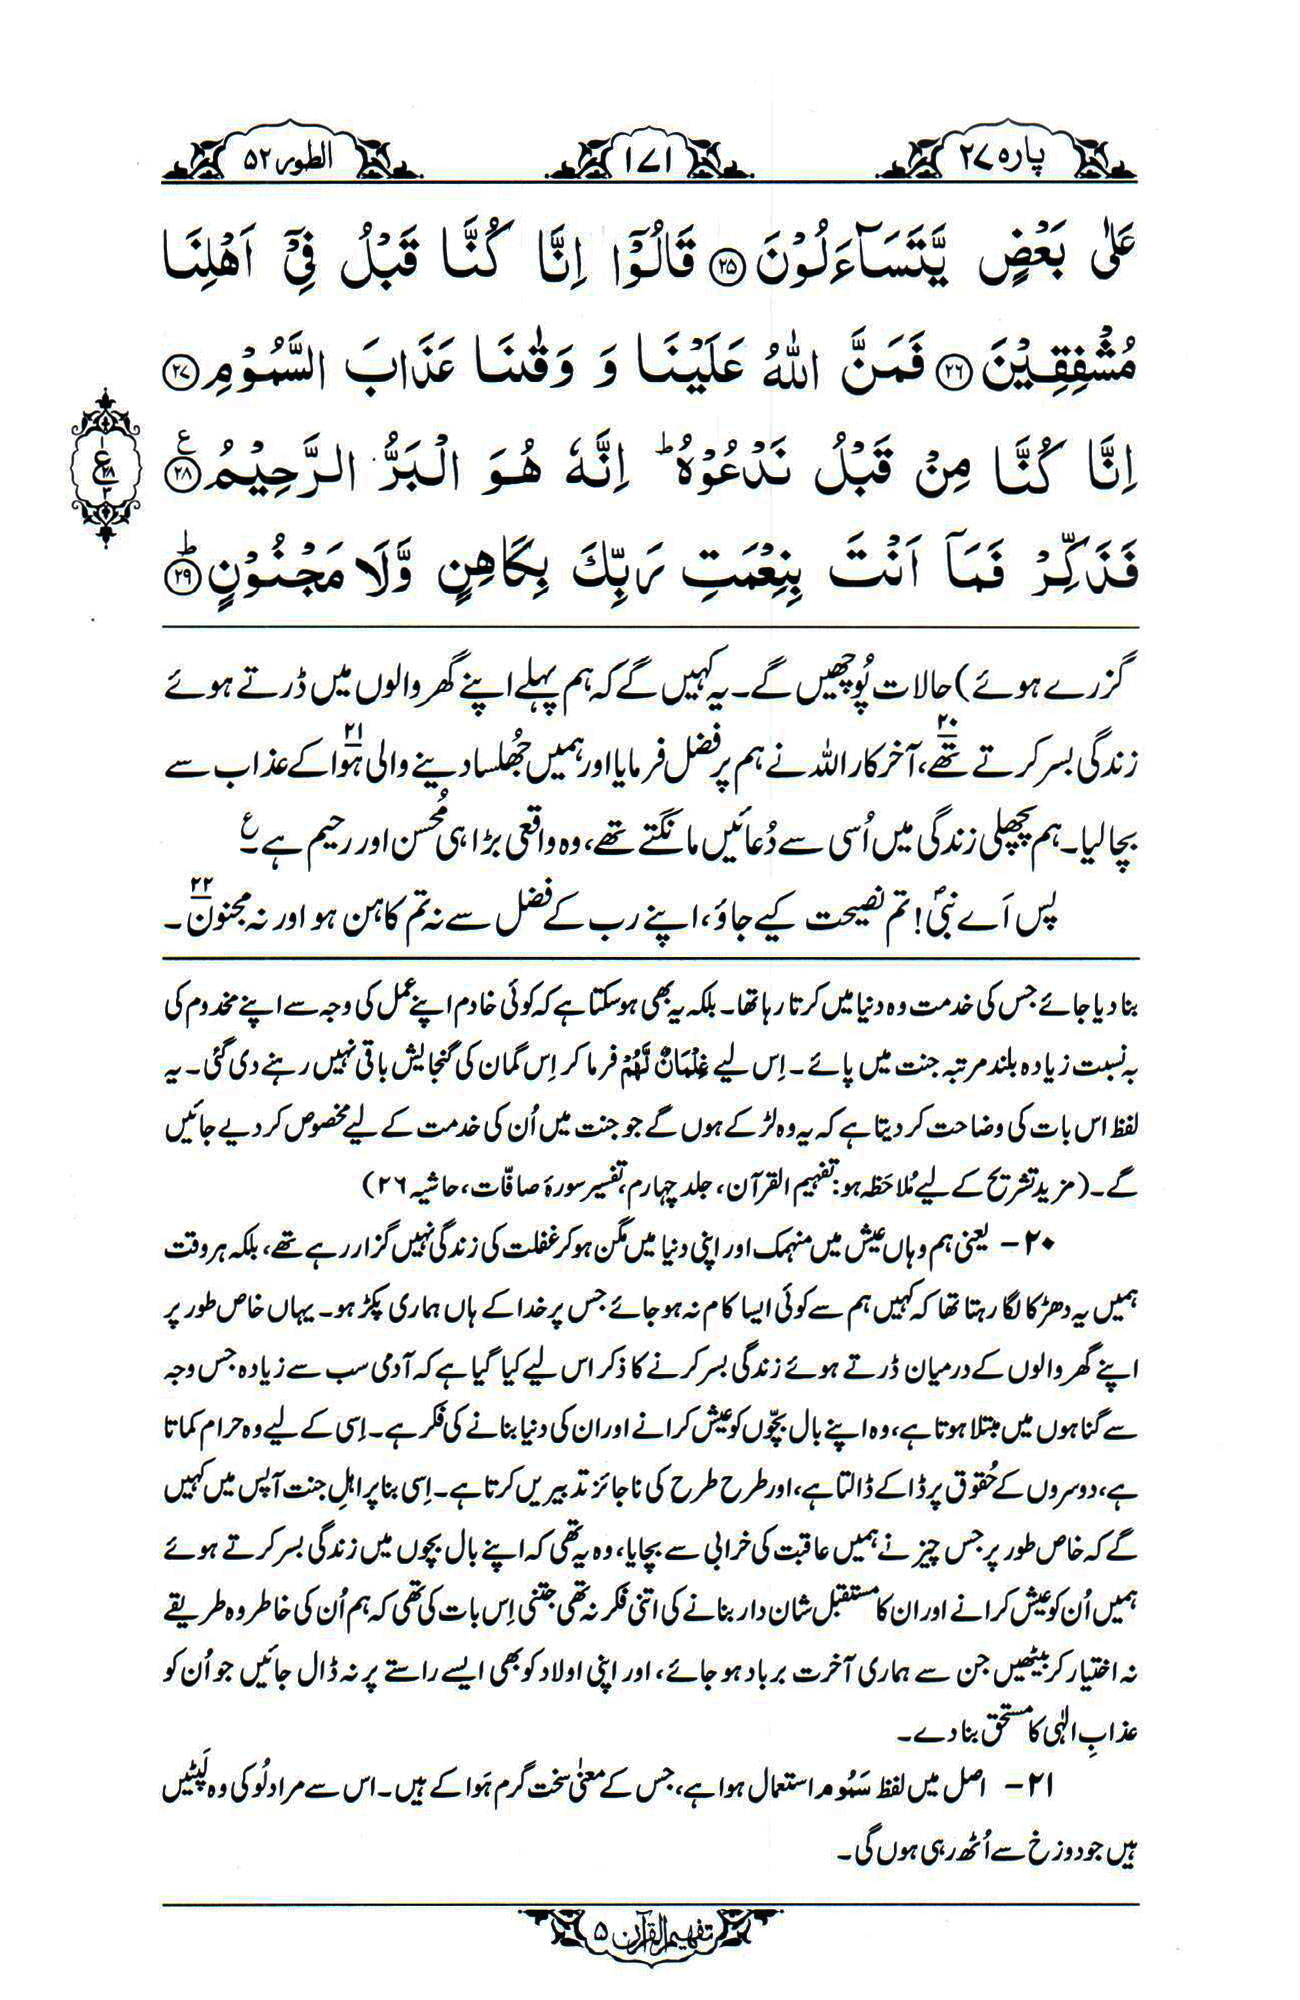 پارہ ۲۷
۱۷۱
الطور ۵۲
عَلٰى بَعْضٍ يَّتَسَآءَلُوْنَ ۲۵ قَالُوْٓا اِنَّا كُنَّا قَبْلُ فِيْٓ اَهْلِنَا
مُشْفِقِيْنَ ۲۶ فَمَنَّ اللّٰهُ عَلَيْنَا وَ وَقٰىنَا عَذَابَ السَّمُوْمِ ۲۷
اِنَّا كُنَّا مِنْ قَبْلُ نَدْعُوْهُ ؕ اِنَّهٗ هُوَ الْبَرُّ الرَّحِيْمُ ۲۸ ع
فَذَكِّرْ فَمَآ اَنْتَ بِنِعْمَتِ رَبِّكَ بِكَاهِنٍ وَّلَا مَجْنُوْنٍ ۲۹ ؕ
۱
ع
۲۸
۳
گزرے ہوئے) حالات پُوچھیں گے۔ یہ کہیں گے کہ ہم پہلے اپنے گھر والوں میں ڈرتے ہوئے
زندگی بسر کرتے تھے۲۰، آخر کار اللہ نے ہم پر فضل فرمایا اور ہمیں جُھلسا دینے والی ہَوا۲۱ کے عذاب سے
بچا لیا۔ ہم پچھلی زندگی میں اُسی سے دُعائیں مانگتے تھے، وہ واقعی بڑا ہی مُحسن اور رحیم ہے۔ ع
پس اَے نبیؐ! تم نصیحت کیے جاؤ، اپنے رب کے فضل سے نہ تم کاہن ہو اور نہ مجنون۲۲۔
بنا دیا جائے جس کی خدمت وہ دنیا میں کرتا رہا تھا۔ بلکہ یہ بھی ہو سکتا ہے کہ کوئی خادم اپنے عمل کی وجہ سے اپنے مخدوم کی
بہ نسبت زیادہ بلند مرتبہ جنت میں پائے۔ اِس لیے غِلْمَانٌ لَّهُمْ فرما کر اِس گمان کی گنجایش باقی نہیں رہنے دی گئی۔ یہ
لفظ اس بات کی وضاحت کر دیتا ہے کہ یہ وہ لڑکے ہوں گے جو جنت میں اُن کی خدمت کے لیے مخصوص کر دیے جائیں
گے۔ (مزید تشریح کے لیے مُلاحَظہ ہو: تفہیم القرآن، جلد چہارم، تفسیر سورۂ صافّات، حاشیہ ۲۶)
۲۰- یعنی ہم وہاں عیش میں منہمک اور اپنی دنیا میں مگن ہو کر غفلت کی زندگی نہیں گزار رہے تھے، بلکہ ہر وقت
ہمیں یہ دھڑکا لگا رہتا تھا کہ کہیں ہم سے کوئی ایسا کام نہ ہو جائے جس پر خدا کے ہاں ہماری پکڑ ہو۔ یہاں خاص طور پر
اپنے گھر والوں کے درمیان ڈرتے ہوئے زندگی بسر کرنے کا ذکر اس لیے کیا گیا ہے کہ آدمی سب سے زیادہ جس وجہ
سے گناہوں میں مبتلا ہوتا ہے، وہ اپنے بال بچّوں کو عیش کرانے اور ان کی دنیا بنانے کی فکر ہے۔ اِسی کے لیے وہ حرام کماتا
ہے، دوسروں کے حُقوق پر ڈاکے ڈالتا ہے، اور طرح طرح کی ناجائز تدبیریں کرتا ہے۔ اِسی بنا پر اہلِ جنت آپس میں کہیں
گے کہ خاص طور پر جس چیز نے ہمیں عاقبت کی خرابی سے بچایا، وہ یہ تھی کہ اپنے بال بچوں میں زندگی بسر کرتے ہوئے
ہمیں اُن کو عیش کرانے اور ان کا مستقبل شان دار بنانے کی اتنی فکر نہ تھی جتنی اِس بات کی تھی کہ ہم اُن کی خاطر وہ طریقے
نہ اختیار کر بیٹھیں جن سے ہماری آخرت برباد ہو جائے، اور اپنی اولاد کو بھی ایسے راستے پر نہ ڈال جائیں جو اُن کو
عذابِ الٰہی کا مستحق بنا دے۔
۲۱- اصل میں لفظ سَمُوم استعمال ہوا ہے، جس کے معنیٰ سخت گرم ہَوا کے ہیں۔ اس سے مراد لُو کی وہ لَپٹیں
ہیں جو دوزخ سے اُٹھ رہی ہوں گی۔
تفہیم القرآن ۵